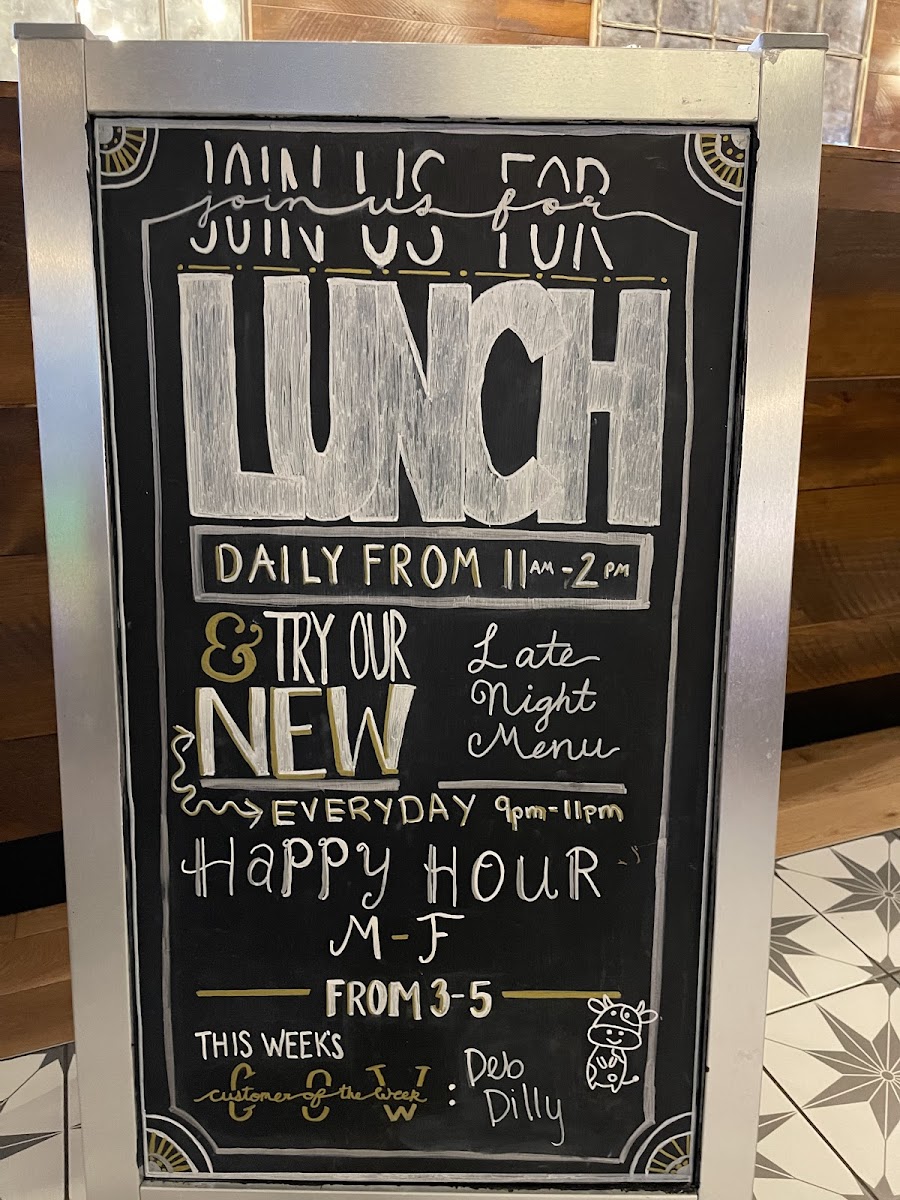 JOIN US FOR
join us for
LUNCH
DAILY FROM 11AM-2PM
& TRY OUR
NEW
Late
Night
Menu
EVERYDAY 9pm-11pm
HaPPy HOUR
M-F
FROM 3-5
THIS WEEK'S
C O W
customer of the week
: Deb
Dilly